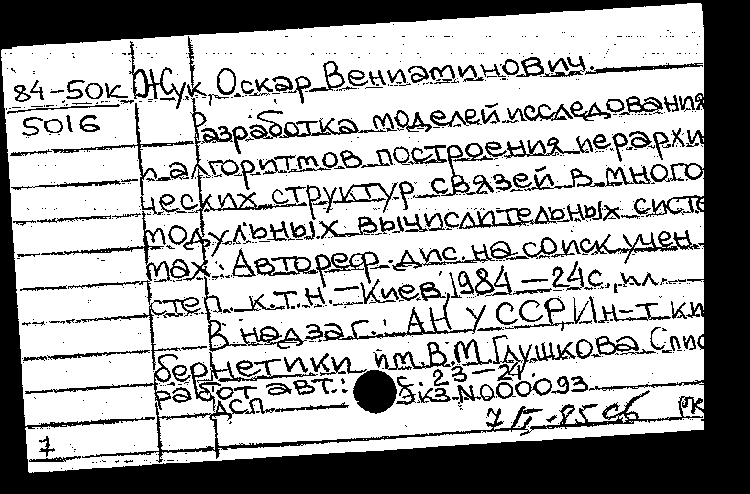 84-50к Жук, Оскар Вениаминович.
5016 Разработка моделей исследования
и алгоритмов построения иерархи
ческих структур связей в много
модульных вычислительных систе
мах: Автореф. дис. на соиск. учен.
степ. к.т.н. — Киев, 1984 — 24 с., ил.
В надзаг.: АН УССР, Ин-т ки
бернетики им. В.М. Глушкова. Спис
работ авт.: с. 23—24.
ДСП Экз. N000093
7